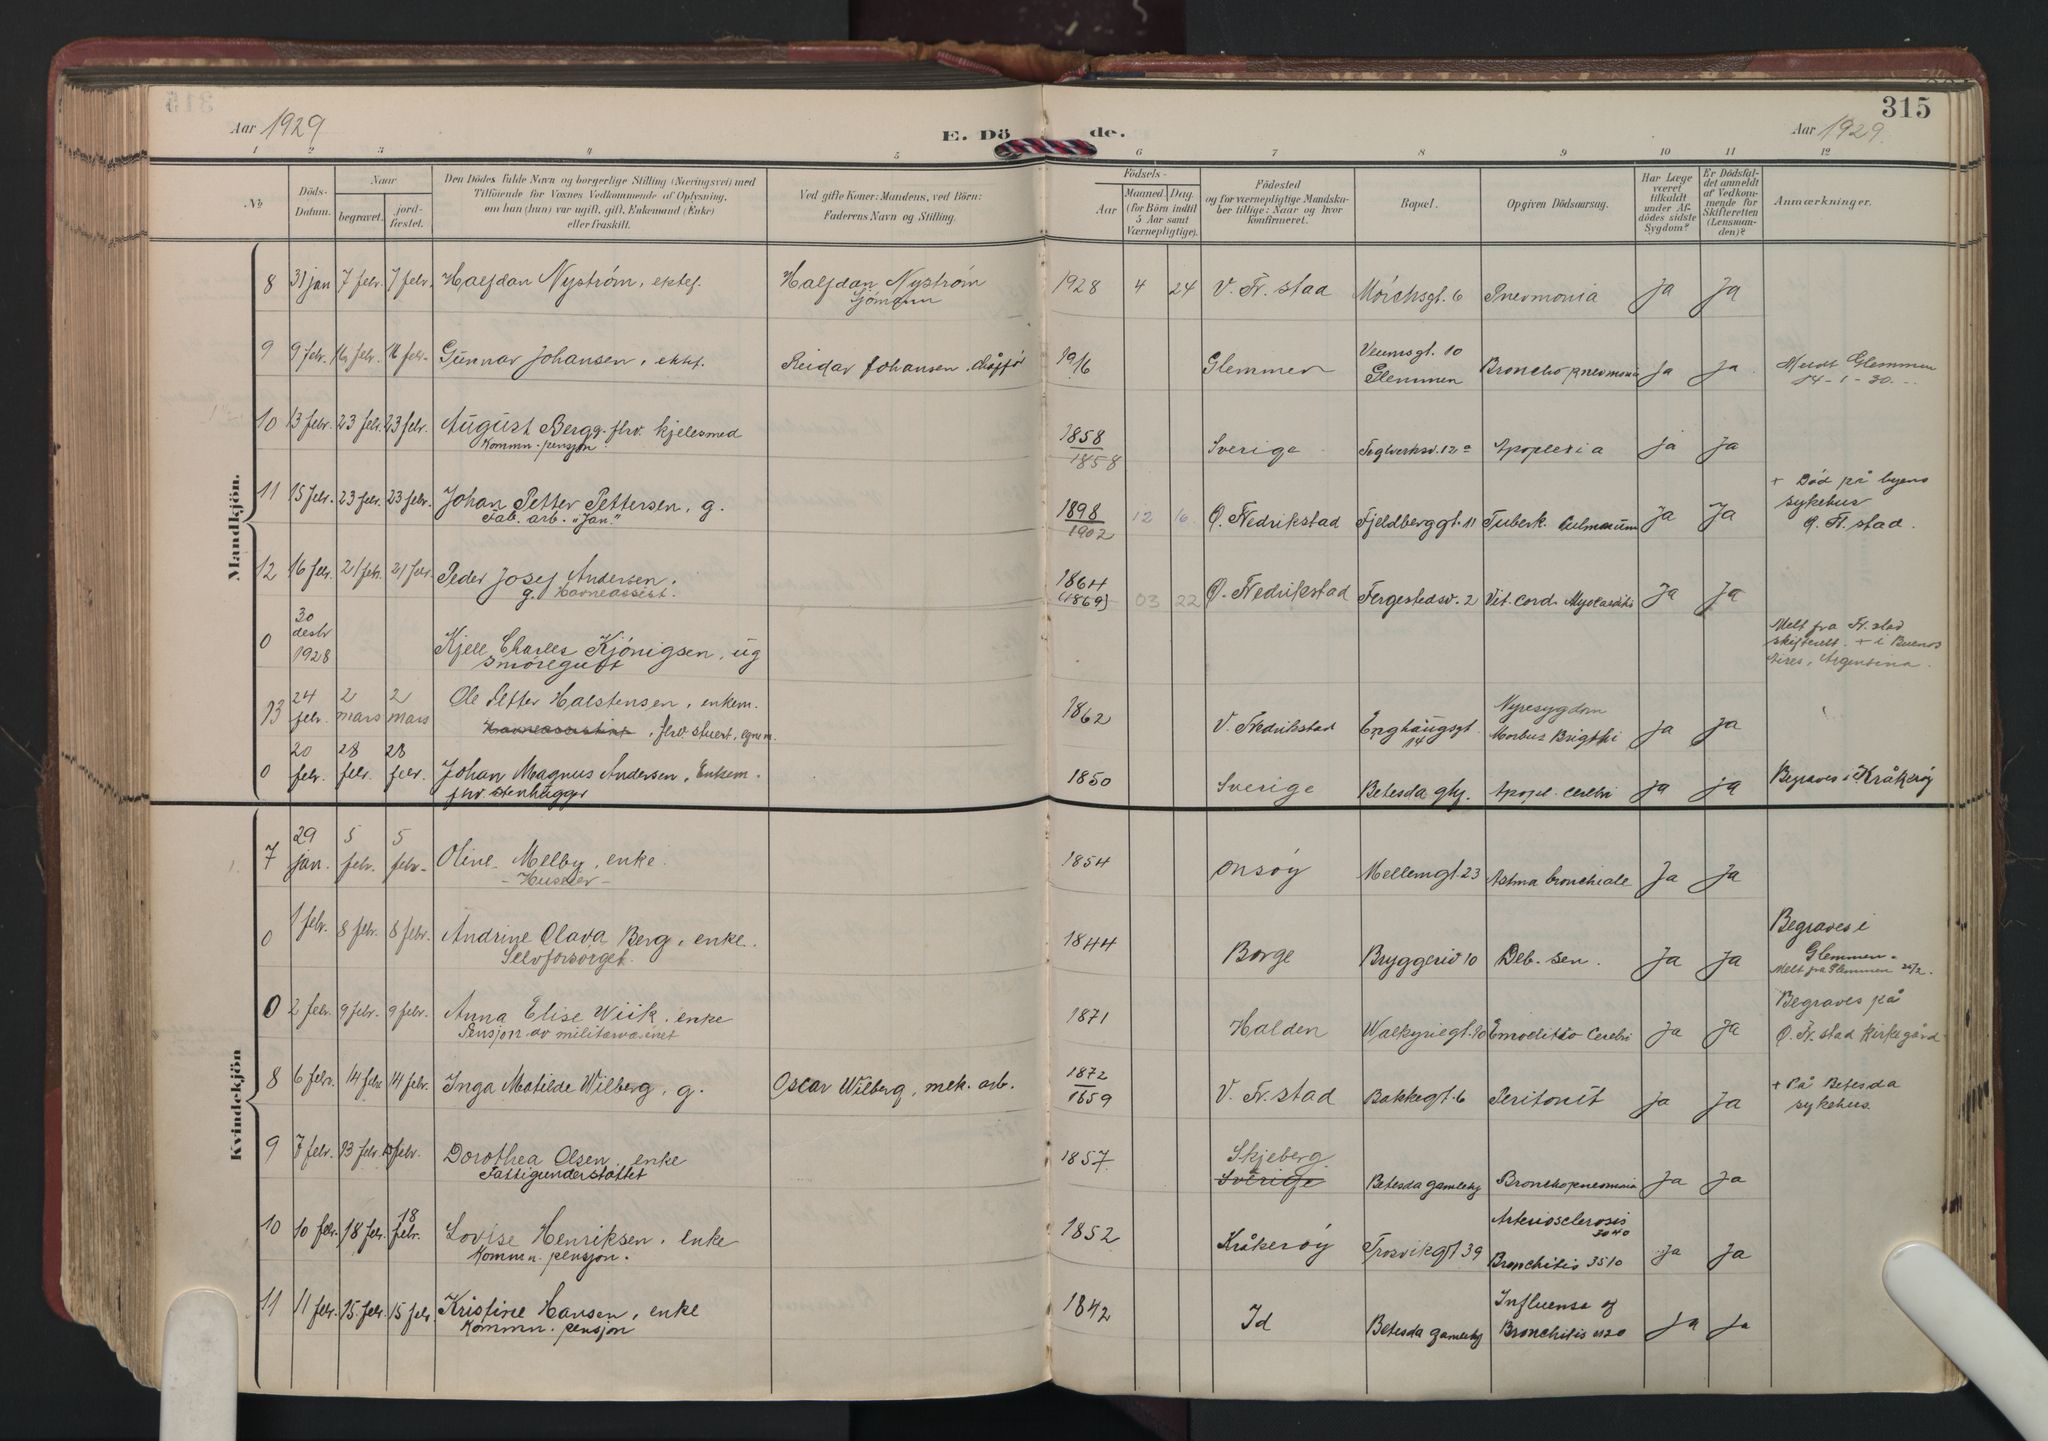 315
Aar 1929
E. Dö de.
Aar 1929.
1 2 3 4 5 6 7 8 9 10 11 12
No
Döds-Datum.
Naar
begravet.
jord-fæstet.
Den Dödes fulde Navn og borgerlige Stilling (Næringsvei) med
Tilföiende for Voxnes Vedkommende af Oplysning,
om han (hun) var ugift, gift, Enkemand (Enke)
eller fraskilt.
Ved gifte Koner: Mandens, ved Börn:
Faderens Navn og Stilling.
Födsels-
Aar
Maaned. Dag.
(for Börn indtil
5 Aar samt
Værnepligtige).
Födested
og for værnepligtige Mandska-
ber tillige: Naar og hvor
konfirmeret.
Bopæl.
Opgiven Dödsaarsag.
Har Læge
været
tilkaldt
under Af-
dödes sidste
Sygdom?
Er Dödsfal-
det anmeldt
af Vedkom-
mende for
Skifteretten
(Lensman-
den)?
Anmærkninger.
Mandkjön.
8 31 jan 7 febr. 7 febr. Halfdan Nyström, ektef. Halfdan Nyström 1928 4 24 V. Fr. stad Mörchsgt. 6 Pnevmonia Ja Ja
Sjömann
9 9 febr. 16 febr. 16 febr. Gunnar Johansen, ektef. Reidar Johansen, 1916 Glemmen Veumsgt. 10 Glemmen Bronchopnevmonia Ja Ja Meldt Glemmen
14-1-30.
10 13 febr. 23 febr. 23 febr. August Berg, fhv. kjelesmed 1858 Sverige Teglverksv. 12a Apoplexia Ja Ja
Kommn. pensjon. 1858
11 15 febr. 23 febr. 23 febr. Johan Petter Pettersen, g. 1898 12 16 Ø. Fredrikstad Fjeldberggt. 11 Tuberk. Pulmonum Ja Ja + Död på byens
Fab. arb. "Jan." 1902 sykehus
Ø. Fr. stad.
12 16 febr. 21 febr. 21 febr. Peder Josef Andersen. 1864 03 22 Ø. Fredrikstad Fergestedsv. 2 Vit. cord. Myocarditis Ja Ja
g. Havneassist. (1869)
0 30 desbr 1928 Kjell Charles Kjönigsen, ug Melt fra Fr. stad
Smöregutt skifterett. + i Buenos
Aires, Argentina.
13 24 febr. 2 mars 2 mars Ole Petter Halstensen, enkem. 1862 V. Fredrikstad Enghaugsgt. 14 Nyresygdom Ja Ja
Havneassistent, fhv. stuert, Morbus Brigthi
0 20 febr. 28 febr. 28 febr. Johan Magnus Andersen, Enkem. 1850 Sverige Betesda glhj. Apopl. cerebri Ja Ja Begraves i Kråkeröy
fhv. stenhugger
Kvindekjön
7 29 jan. 5 febr. 5 febr. Oline Melby, enke. 1854 Onsöy Mellemgt. 23 Astma bronchiale Ja Ja
- Huseier -
0 1 febr. 8 febr. 8 febr. Andrine Olava Berg, enke. 1844 Borge Bryggeriv 10 Deb. sen. Ja Ja Begraves i
Selvforsörget. Glemmen.
Melt fra Glemmen 20/2.
0 2 febr. 9 febr. 9 febr. Anna Elise Wiik, enke 1871 Halden Walkyriegt. 10 Emoditio Cerebri Ja Ja Begraves på
Pensjon av militærvæsenet Ø. Fr. stad kirkegård
8 6 febr. 14 febr. 14 febr. Inga Matilde Wilberg, g. Oscar Wilberg, mek. arb. 1872 V. Fr. stad Bakkegt. 6 Peritonit Ja Ja + På Betesda
1659 sykehus.
9 7 febr. 13 febr. 13 febr. Dorothea Olsen, enke 1857 Skjeberg. Betesda gamlehj Bronchopnevmonia Ja Ja
Fattigunderstöttet Sverige
10 10 febr. 18 febr. 18 febr. Lovise Henriksen, enke 1852 Kråkeröy Trosvikgt 39 Arteriosclerosis 3040 Ja Ja
Kommn. pensjon. Bronchitis 3510
11 11 febr. 15 febr. 15 febr Kristine Hansen, enke 1842 Id Betesda gamlehj Influensa og Ja Ja
Kommn. pensjon Bronchitis 1120